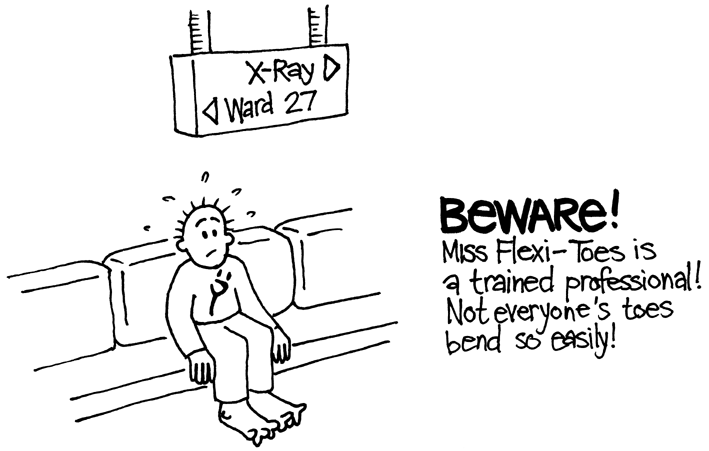 X-Ray ▷
◁ Ward 27
BEWARE!
Miss Flexi-Toes is
a trained professional!
Not everyone's toes
bend so easily!